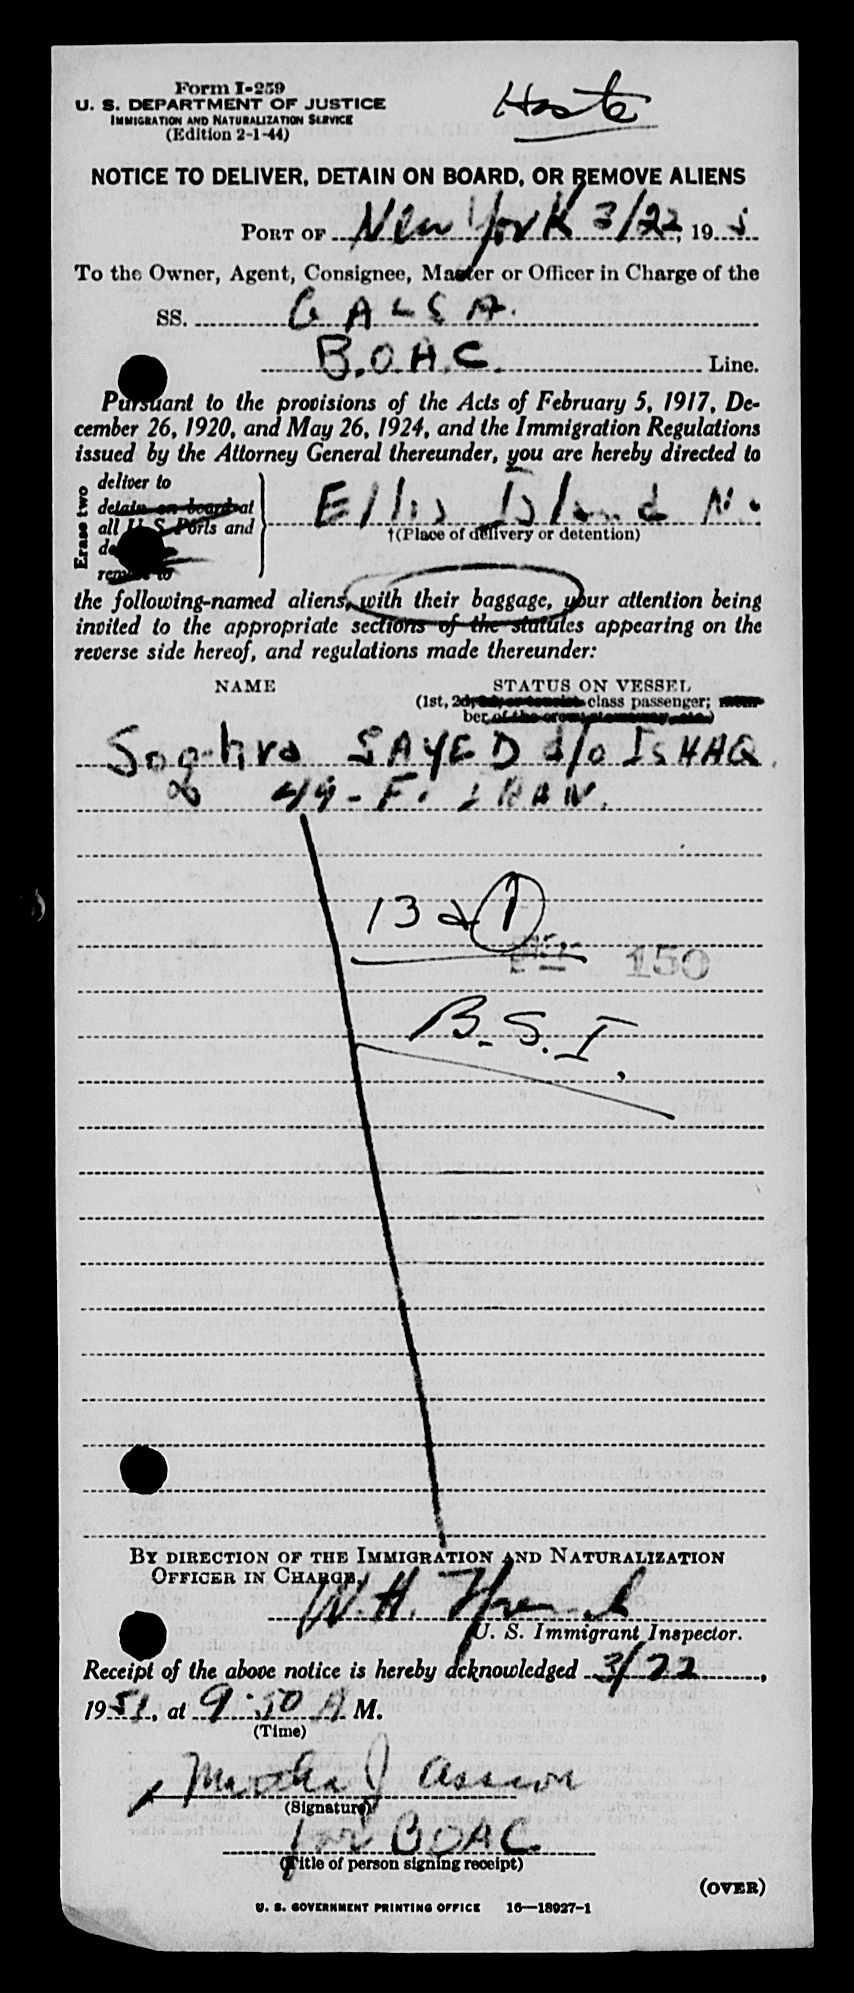 Form I-259
U. S. DEPARTMENT OF JUSTICE
IMMIGRATION AND NATURALIZATION SERVICE
(Edition 2-1-44)
NOTICE TO DELIVER, DETAIN ON BOARD, OR REMOVE ALIENS
PORT OF New York 3/22, 195
To the Owner, Agent, Consignee, Master or Officer in Charge of the
SS. GALSA.
B.O.A.C. Line.
Pursuant to the provisions of the Acts of February 5, 1917, De-
cember 26, 1920, and May 26, 1924, and the Immigration Regulations
issued by the Attorney General thereunder, you are hereby directed to
Erase two
deliver to
detain on board at
all U S Ports and
remove to
Ellis Island N.
†(Place of delivery or detention)
the following-named aliens, with their baggage, your attention being
invited to the appropriate sections of the statutes appearing on the
reverse side hereof, and regulations made thereunder:
NAME STATUS ON VESSEL
(1st, 2d, class passenger; mem-
ber of the crew, stowaway, etc.)
Soghra SAYED d/o ISHAQ.
49-F. IRAN.
13 d 1
150
B.S.I.
BY DIRECTION OF THE IMMIGRATION AND NATURALIZATION
OFFICER IN CHARGE.
W.H.
U. S. Immigrant Inspector.
Receipt of the above notice is hereby acknowledged 3/22,
1951, at 9:50 A M.
(Time)
Martha J
(Signature)
for BOAC
(Title of person signing receipt)
(OVER)
U. S. GOVERNMENT PRINTING OFFICE 16—18927-1